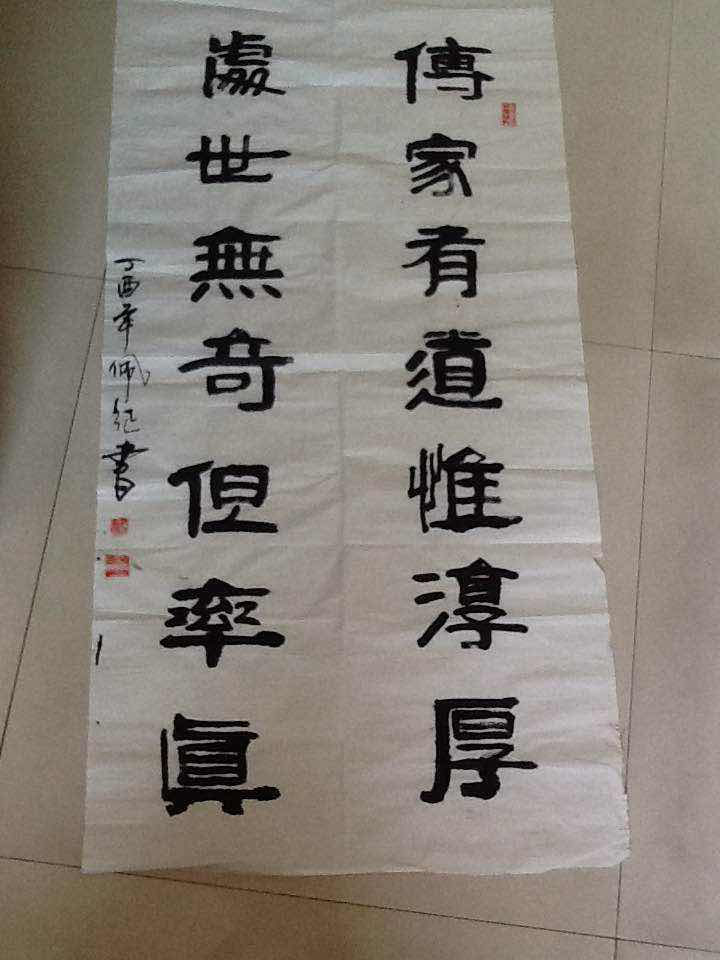 傳家有道惟淳厚
處世無奇但率眞
丁酉年佩紀書